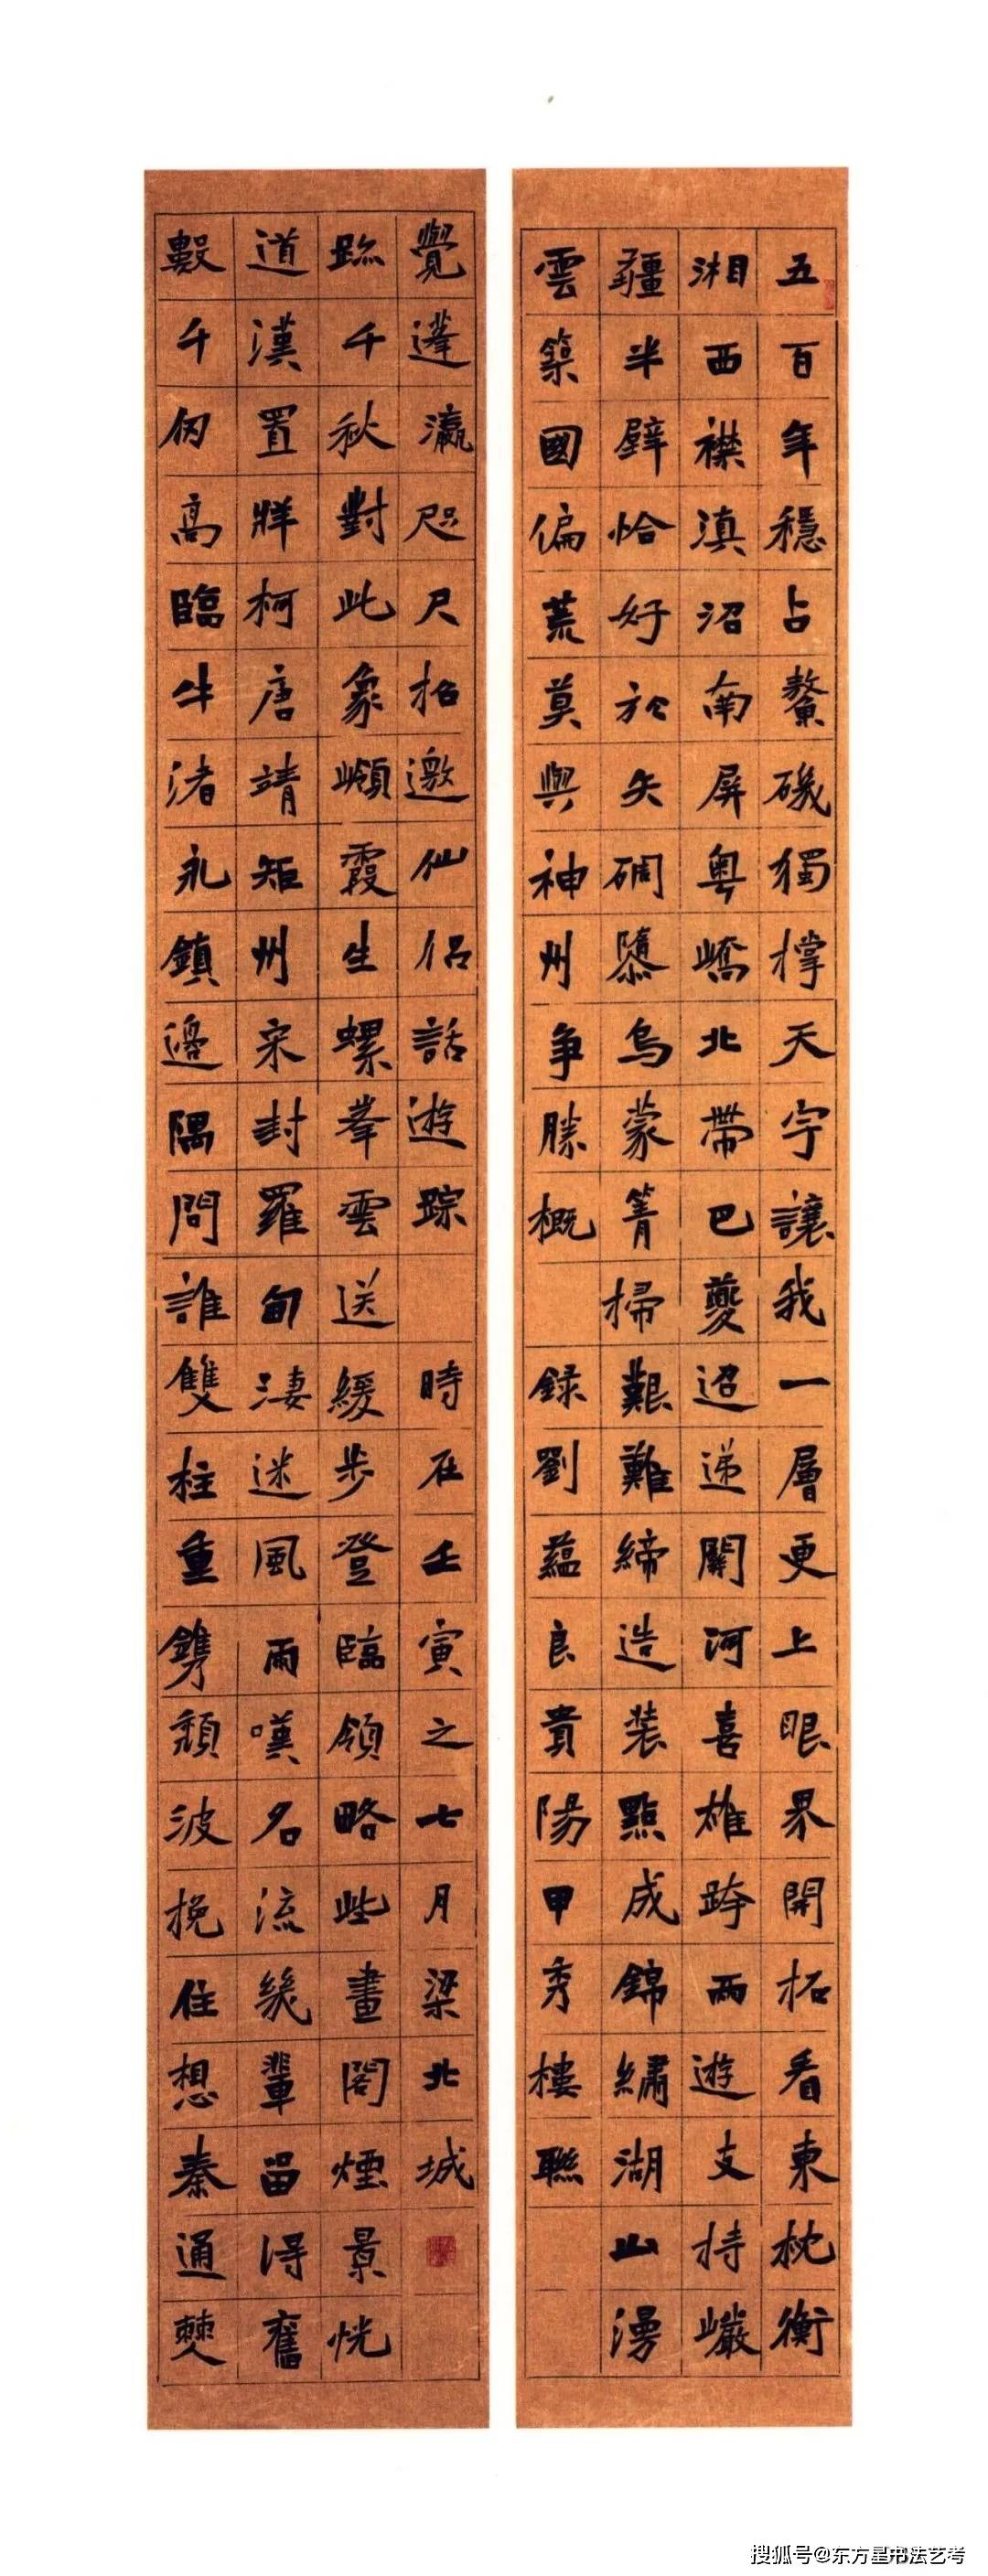 五百年穩占鰲磯獨撐天宇讓我一層更上眼界開拓看東枕衡
湘西襟滇沼南屏粵嶠北帶巴夔迢遞關河喜雄跨兩遊支持巖
疆半壁恰好於矢碉隳烏蒙箐掃艱難締造裝點成錦繡湖山漫
雲築國偏荒莫與神州争勝概 録劉蘊良貴陽甲秀樓聯
數千仞高臨牛渚永鎮邊隅問誰雙柱重鐫頹波挽住想秦通僰
道漢置牂柯唐靖矩州宋封羅甸淒迷風雨嘆名流幾輩留得舊
跡千秋對此象嶺霞生螺峯雲送緩步登臨領略些畫閣煙景恍
覺蓬瀛咫尺招邀仙侶話遊踪 時在壬寅之七月梁北城
搜狐号@东方星书法艺考